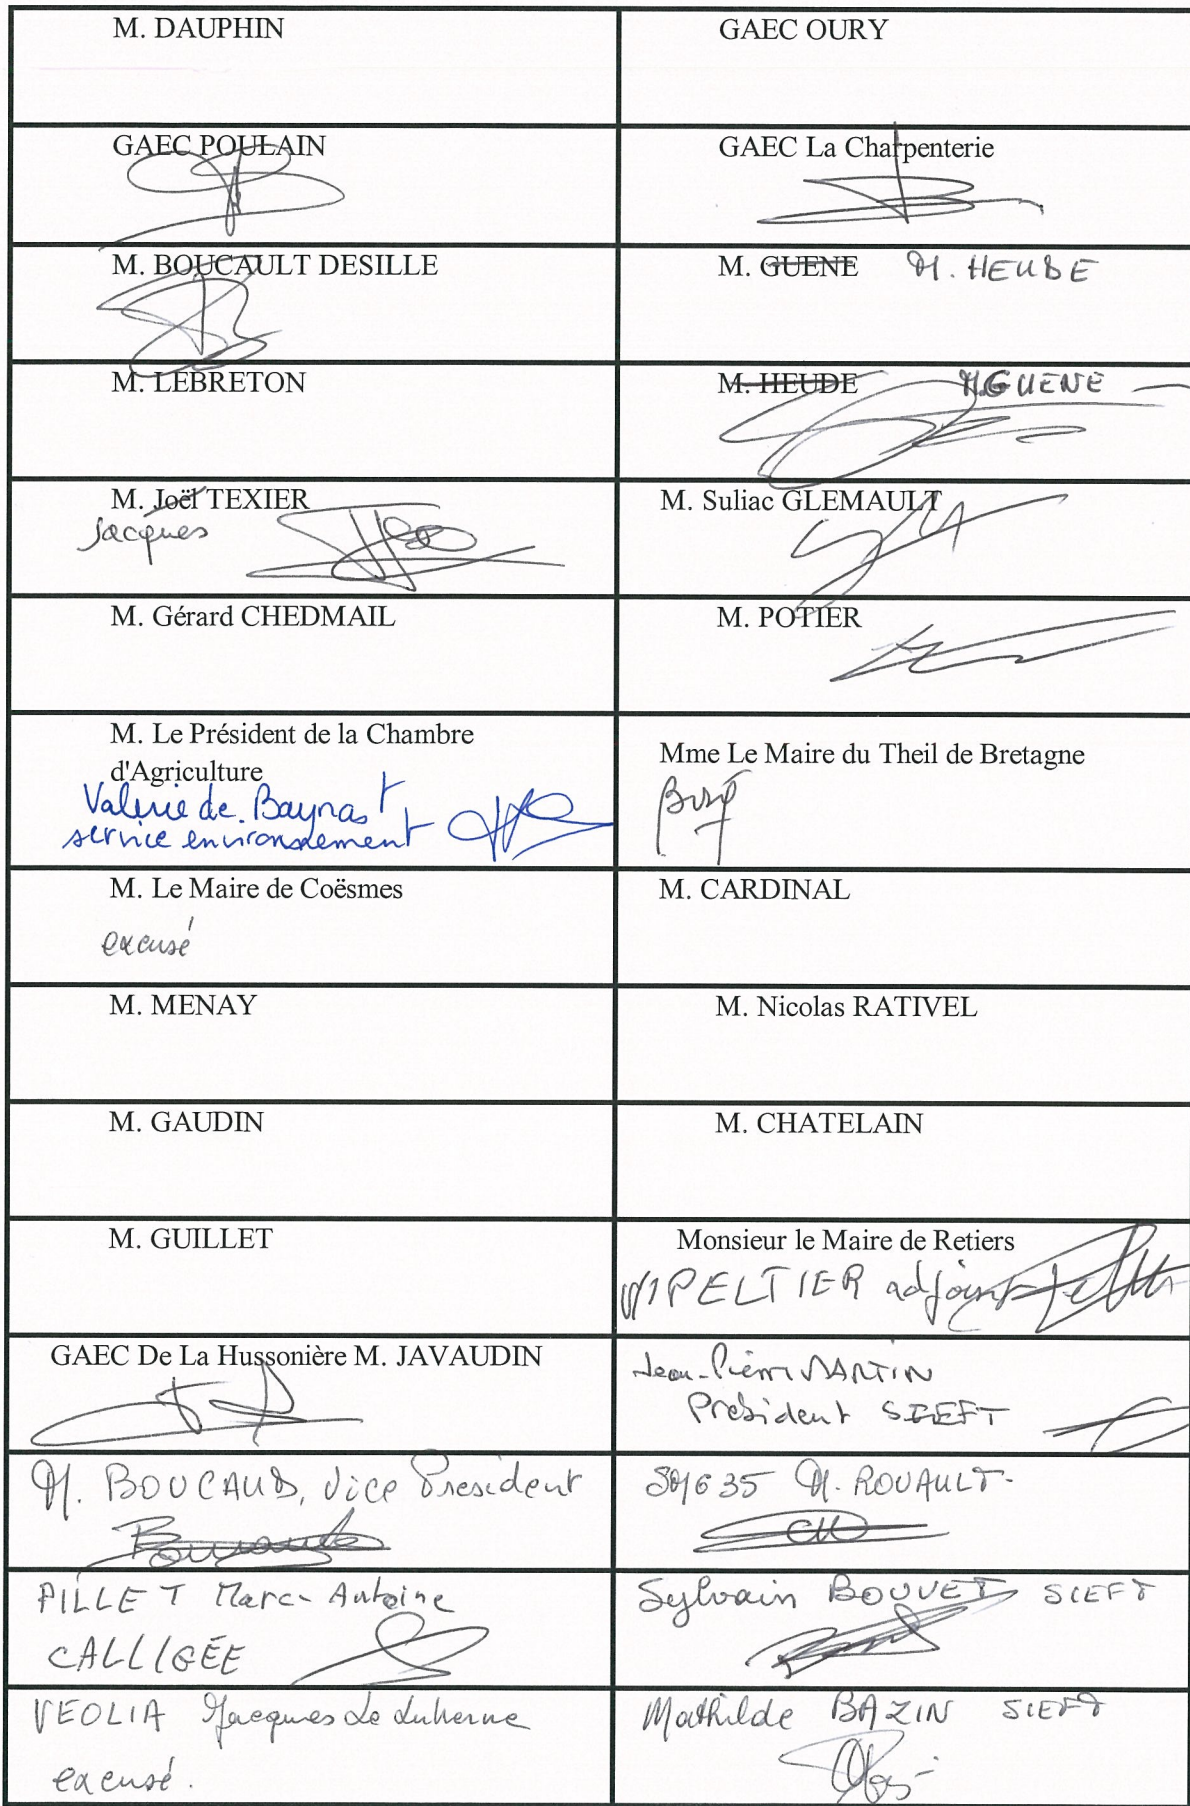 M. DAUPHIN
GAEC OURY
GAEC POULAIN
GAEC La Charpenterie
M. BOUCAULT DESILLE
M. GUENE M. HEUDE
M. LEBRETON
M. HEUDE M. GUENE
M. Joël TEXIER
Jacques
M. Suliac GLEMAULT
M. Gérard CHEDMAIL
M. POTIER
M. Le Président de la Chambre
d'Agriculture
Valérie de Baynast
service environnement
Mme Le Maire du Theil de Bretagne
M. Le Maire de Coësmes
excusé
M. CARDINAL
M. MENAY
M. Nicolas RATIVEL
M. GAUDIN
M. CHATELAIN
M. GUILLET
Monsieur le Maire de Retiers
M PELTIER adjoint
GAEC De La Hussonière M. JAVAUDIN
Jean-Pierre MARTIN
Président SIEFT
M. BOUCAUD, Vice Président
SMG35 M. ROUAULT
PILLET Marc-Antoine
CALLIGÉE
Sylvain BOUVET SIEFT
VEOLIA Jacques Le
excusé.
Mathilde BAZIN SIEFT